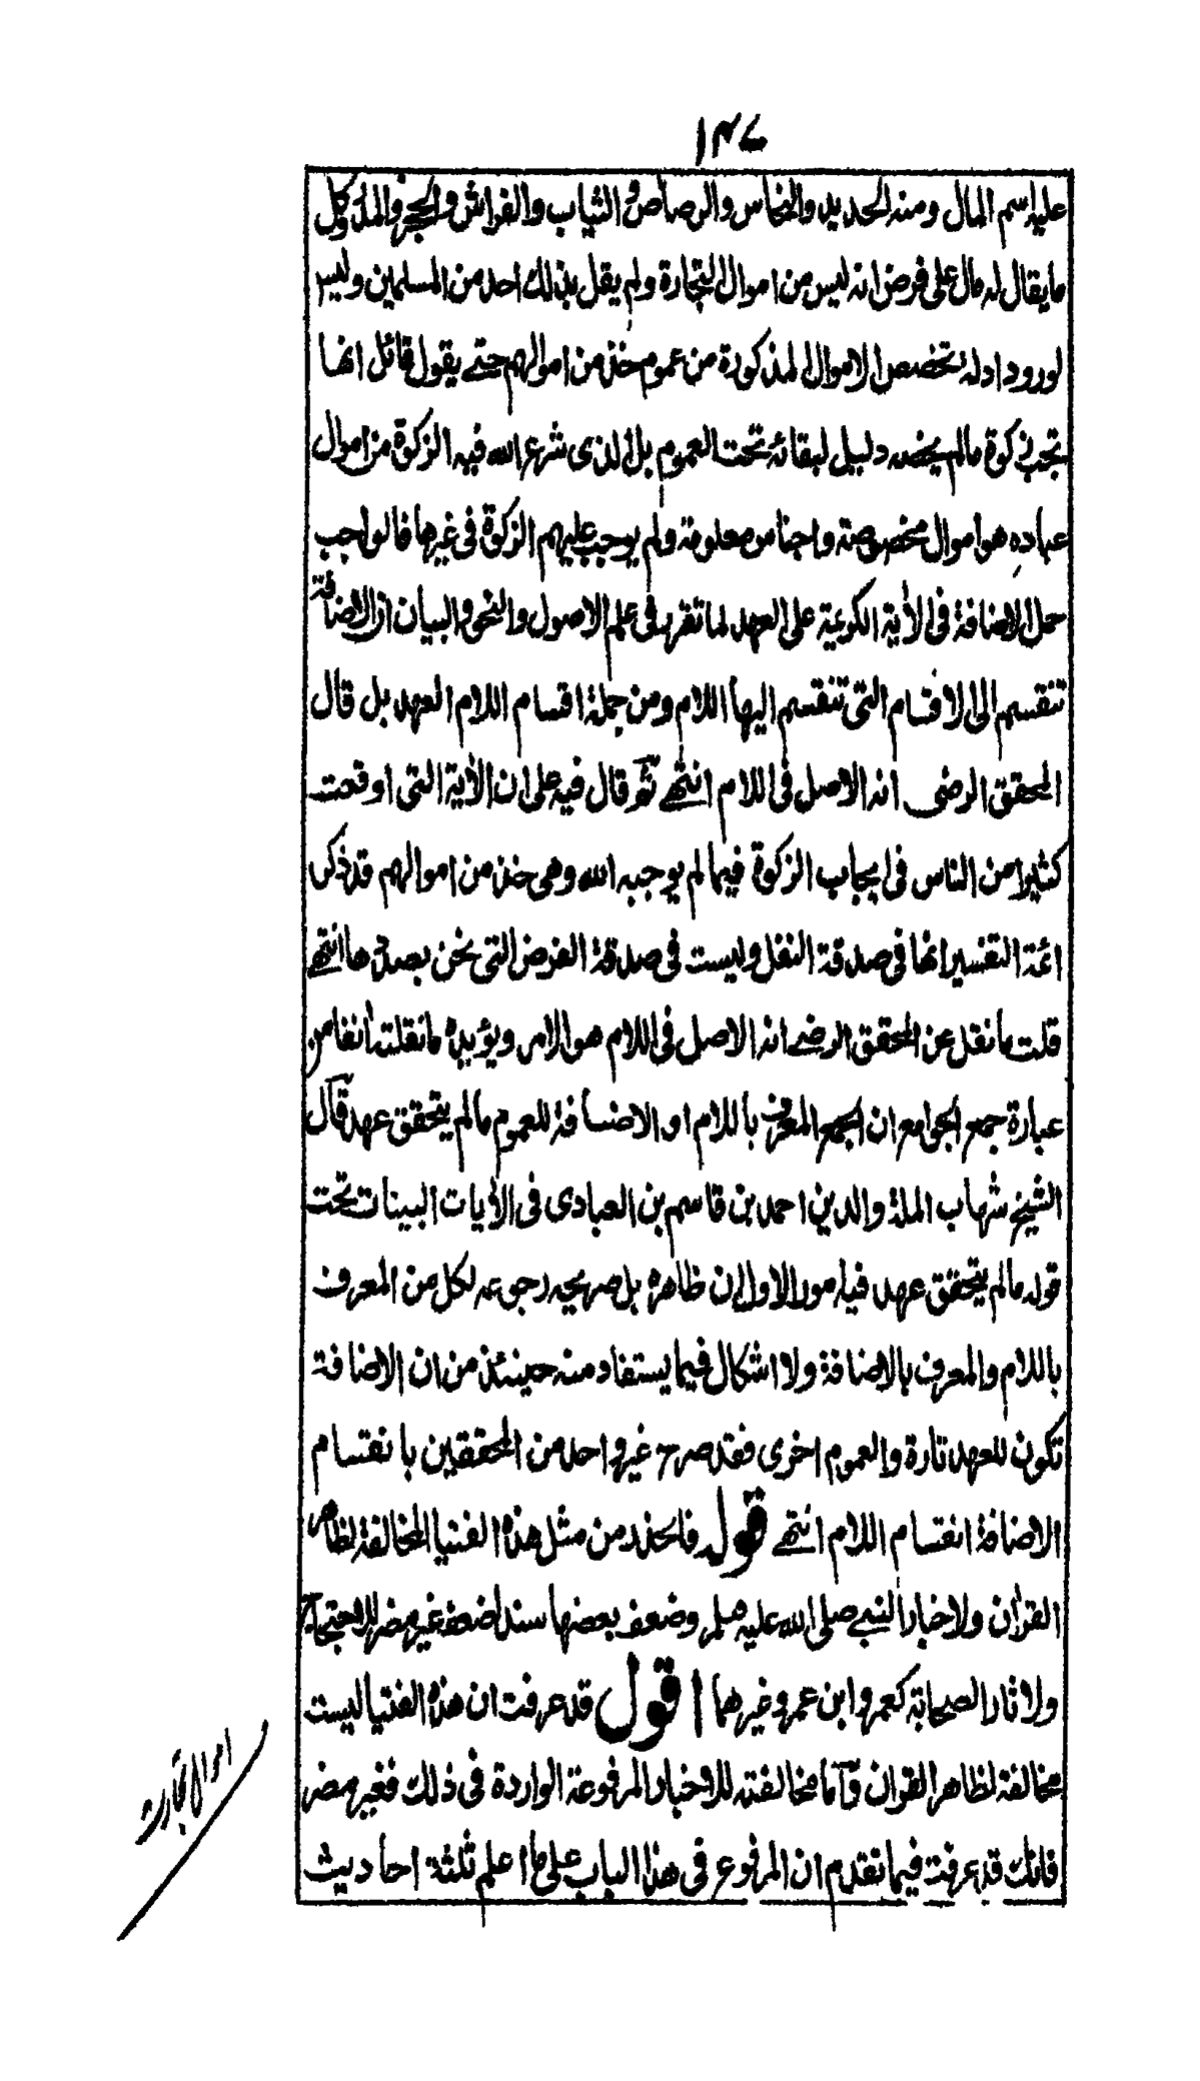 ١٤٧
عليه اسم المال ومنه الحديد والنحاس والرصاص والثياب والفراش والحجر والمدر وكل
ما يقال له مال على فرض انه ليس من اموال التجارة ولم يقل بذلك احد من المسلمين وليس
لورود ادلة تخصص الاموال المذكورة من عموم خذ من اموالهم حتى يقول قائل انها
تجب زكوة مالم يخصه دليل لبقائه تحت العموم بل الذى شرع الله فيه الزكوة من اموال
عباده هو اموال مخصوصة واجناس معلومة ولم يوجب عليهم الزكوة فى غيرها فالواجب
حمل الاضافة فى الأية الكريمة على العهد لما تقرر فى علم الاصول والنحو والبيان ان الاضافة
تنقسم الى الاقسام التى تنقسم اليها اللام ومن جملة اقسام اللام العهد بل قال
المحقق الرضى انه الاصل فى اللام انتهى ثم قال فيه على ان الأية التى اوقعت
كثيرا من الناس فى ايجاب الزكوة فيما لم يوجبه الله وهى خذ من اموالهم قد ذكر
ائمة التفسير انها فى صدقة النفل وليست فى صدقة الفرض التى نحن بصددها انتهى
قلت ما نقل عن المحقق الرضى انه الاصل فى اللام هو الامر ويؤيده ما نقلته أنفا من
عبارة جمع الجوامع ان الجمع المعرف باللام او الاضافة للعموم مالم يتحقق عهد قال
الشيخ شهاب الملة والدين احمد بن قاسم بن العبادى فى الأيات البينات تحت
قوله مالم يتحقق عهد فيه امور الاول ان ظاهره بل صريحه رجوعه لكل من المعرف
باللام والمعرف بالاضافة ولا اشكال فيما يستفاد منه حينئذ من ان الاضافة
تكون للعهد تارة والعموم اخرى فقد صرح غير واحد من المحققين بانقسام
الاضافة انقسام اللام انتهى قوله فالحذر من مثل هذه الفتيا المخالفة لظاهر
القرأن ولاخبار النبى صلى الله عليه وسلم وضعف بعضها سندا ضعف غير مضر للاحتجاج
ولأثار الصحابة كعمر وابن عمر وغيرهما اقول قد عرفت ان هذه الفتيا ليست
مخالفة لظاهر القرأن وأما مخالفته للاخبار المرفوعة الواردة فى ذلك فغير مضر
فانك قد عرفت فيما تقدم ان المرفوع فى هذا الباب على ما اعلم ثلثة احاديث
اموال تجارت